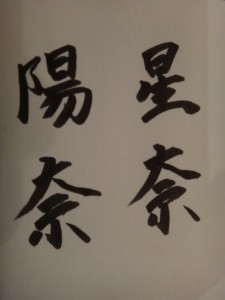 星奈
陽奈